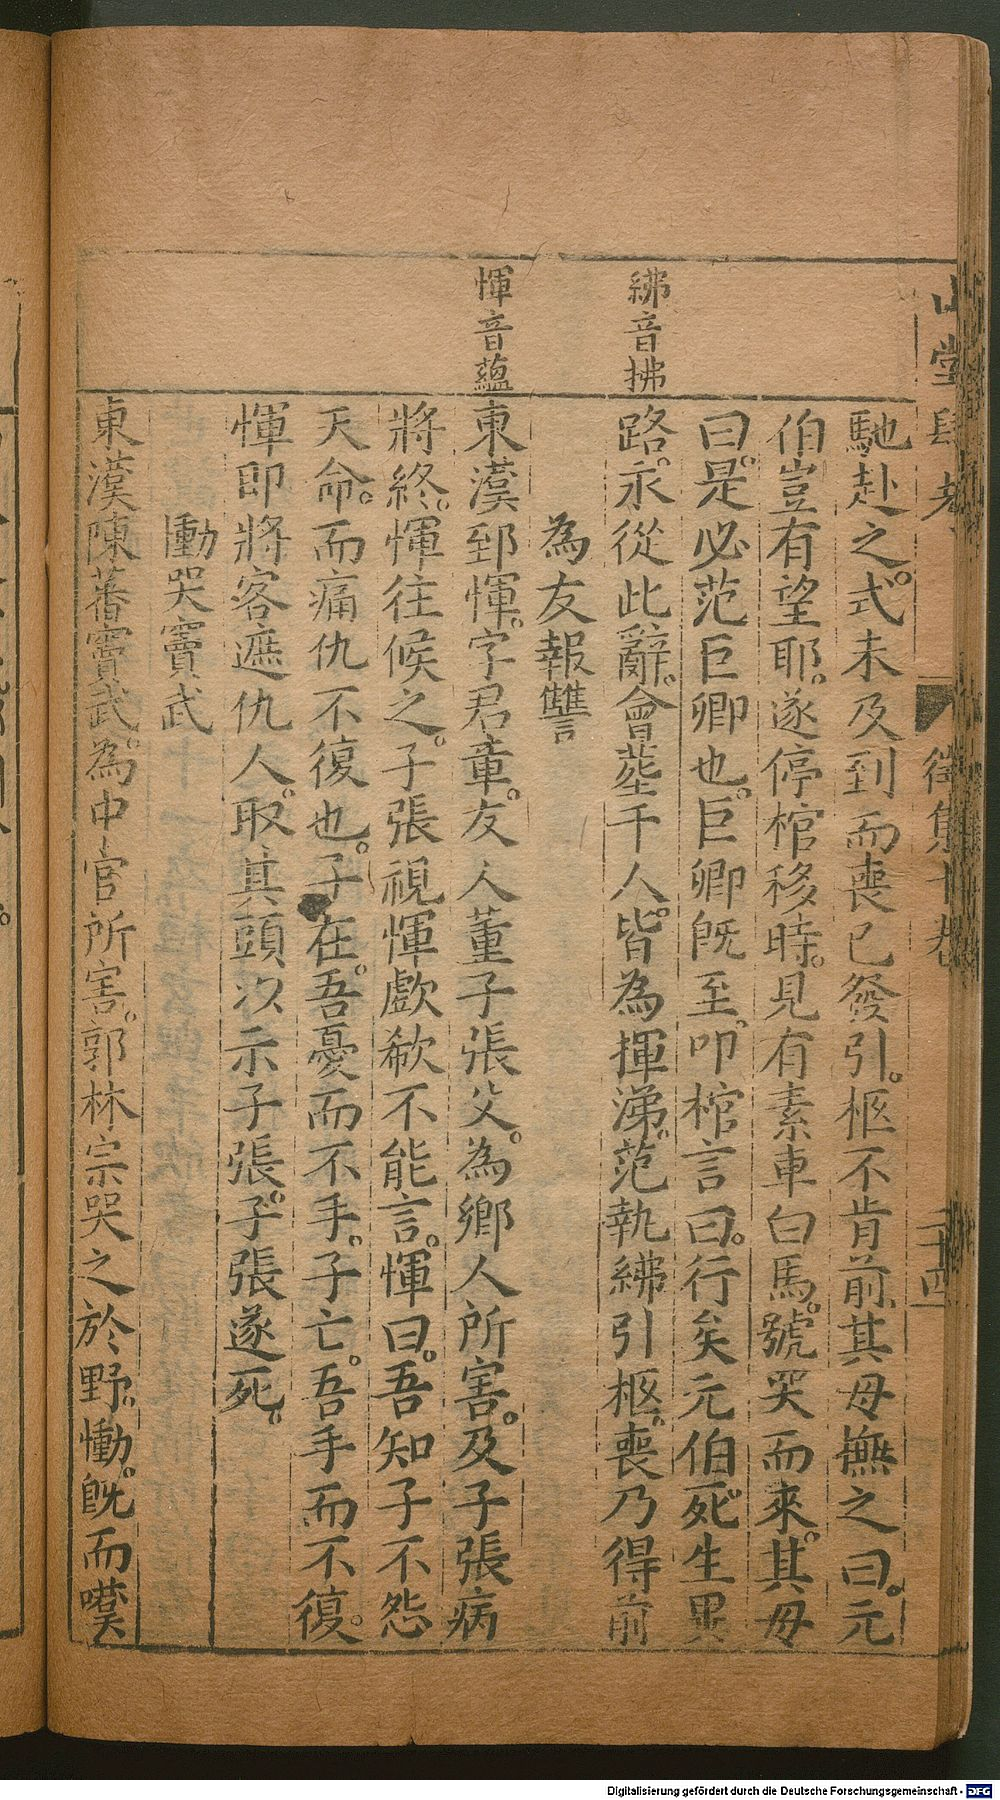 山堂肆考
徵集十卷
二十四
紼音拂
惲音藴
馳赴之。式未及到而喪已發引。柩不肯前。其母撫之曰。元
伯豈有望耶。遂停棺移時。見有素車白馬。號哭而來。其母
曰。是必范巨卿也。巨卿既至。叩棺言曰。行矣元伯死生異
路。永從此辭。會塟千人。皆為揮涕。范執紼引柩。喪乃得前
為友報讐
東漢郅惲。字君章。友人董子張父。為鄉人所害。及子張病
將終。惲往候之。子張視惲歔欷不能言。惲曰。吾知子不怨
天命。而痛仇不復也。子在。吾憂而不手。子亡。吾手而不復。
惲即將客遮仇人。取其頭以示子張。子張遂死。
慟哭竇武
東漢陳蕃竇武。為中官所害。郭林宗哭之於野。慟。既而嘆
Digitalisierung gefördert durch die Deutsche Forschungsgemeinschaft - DFG